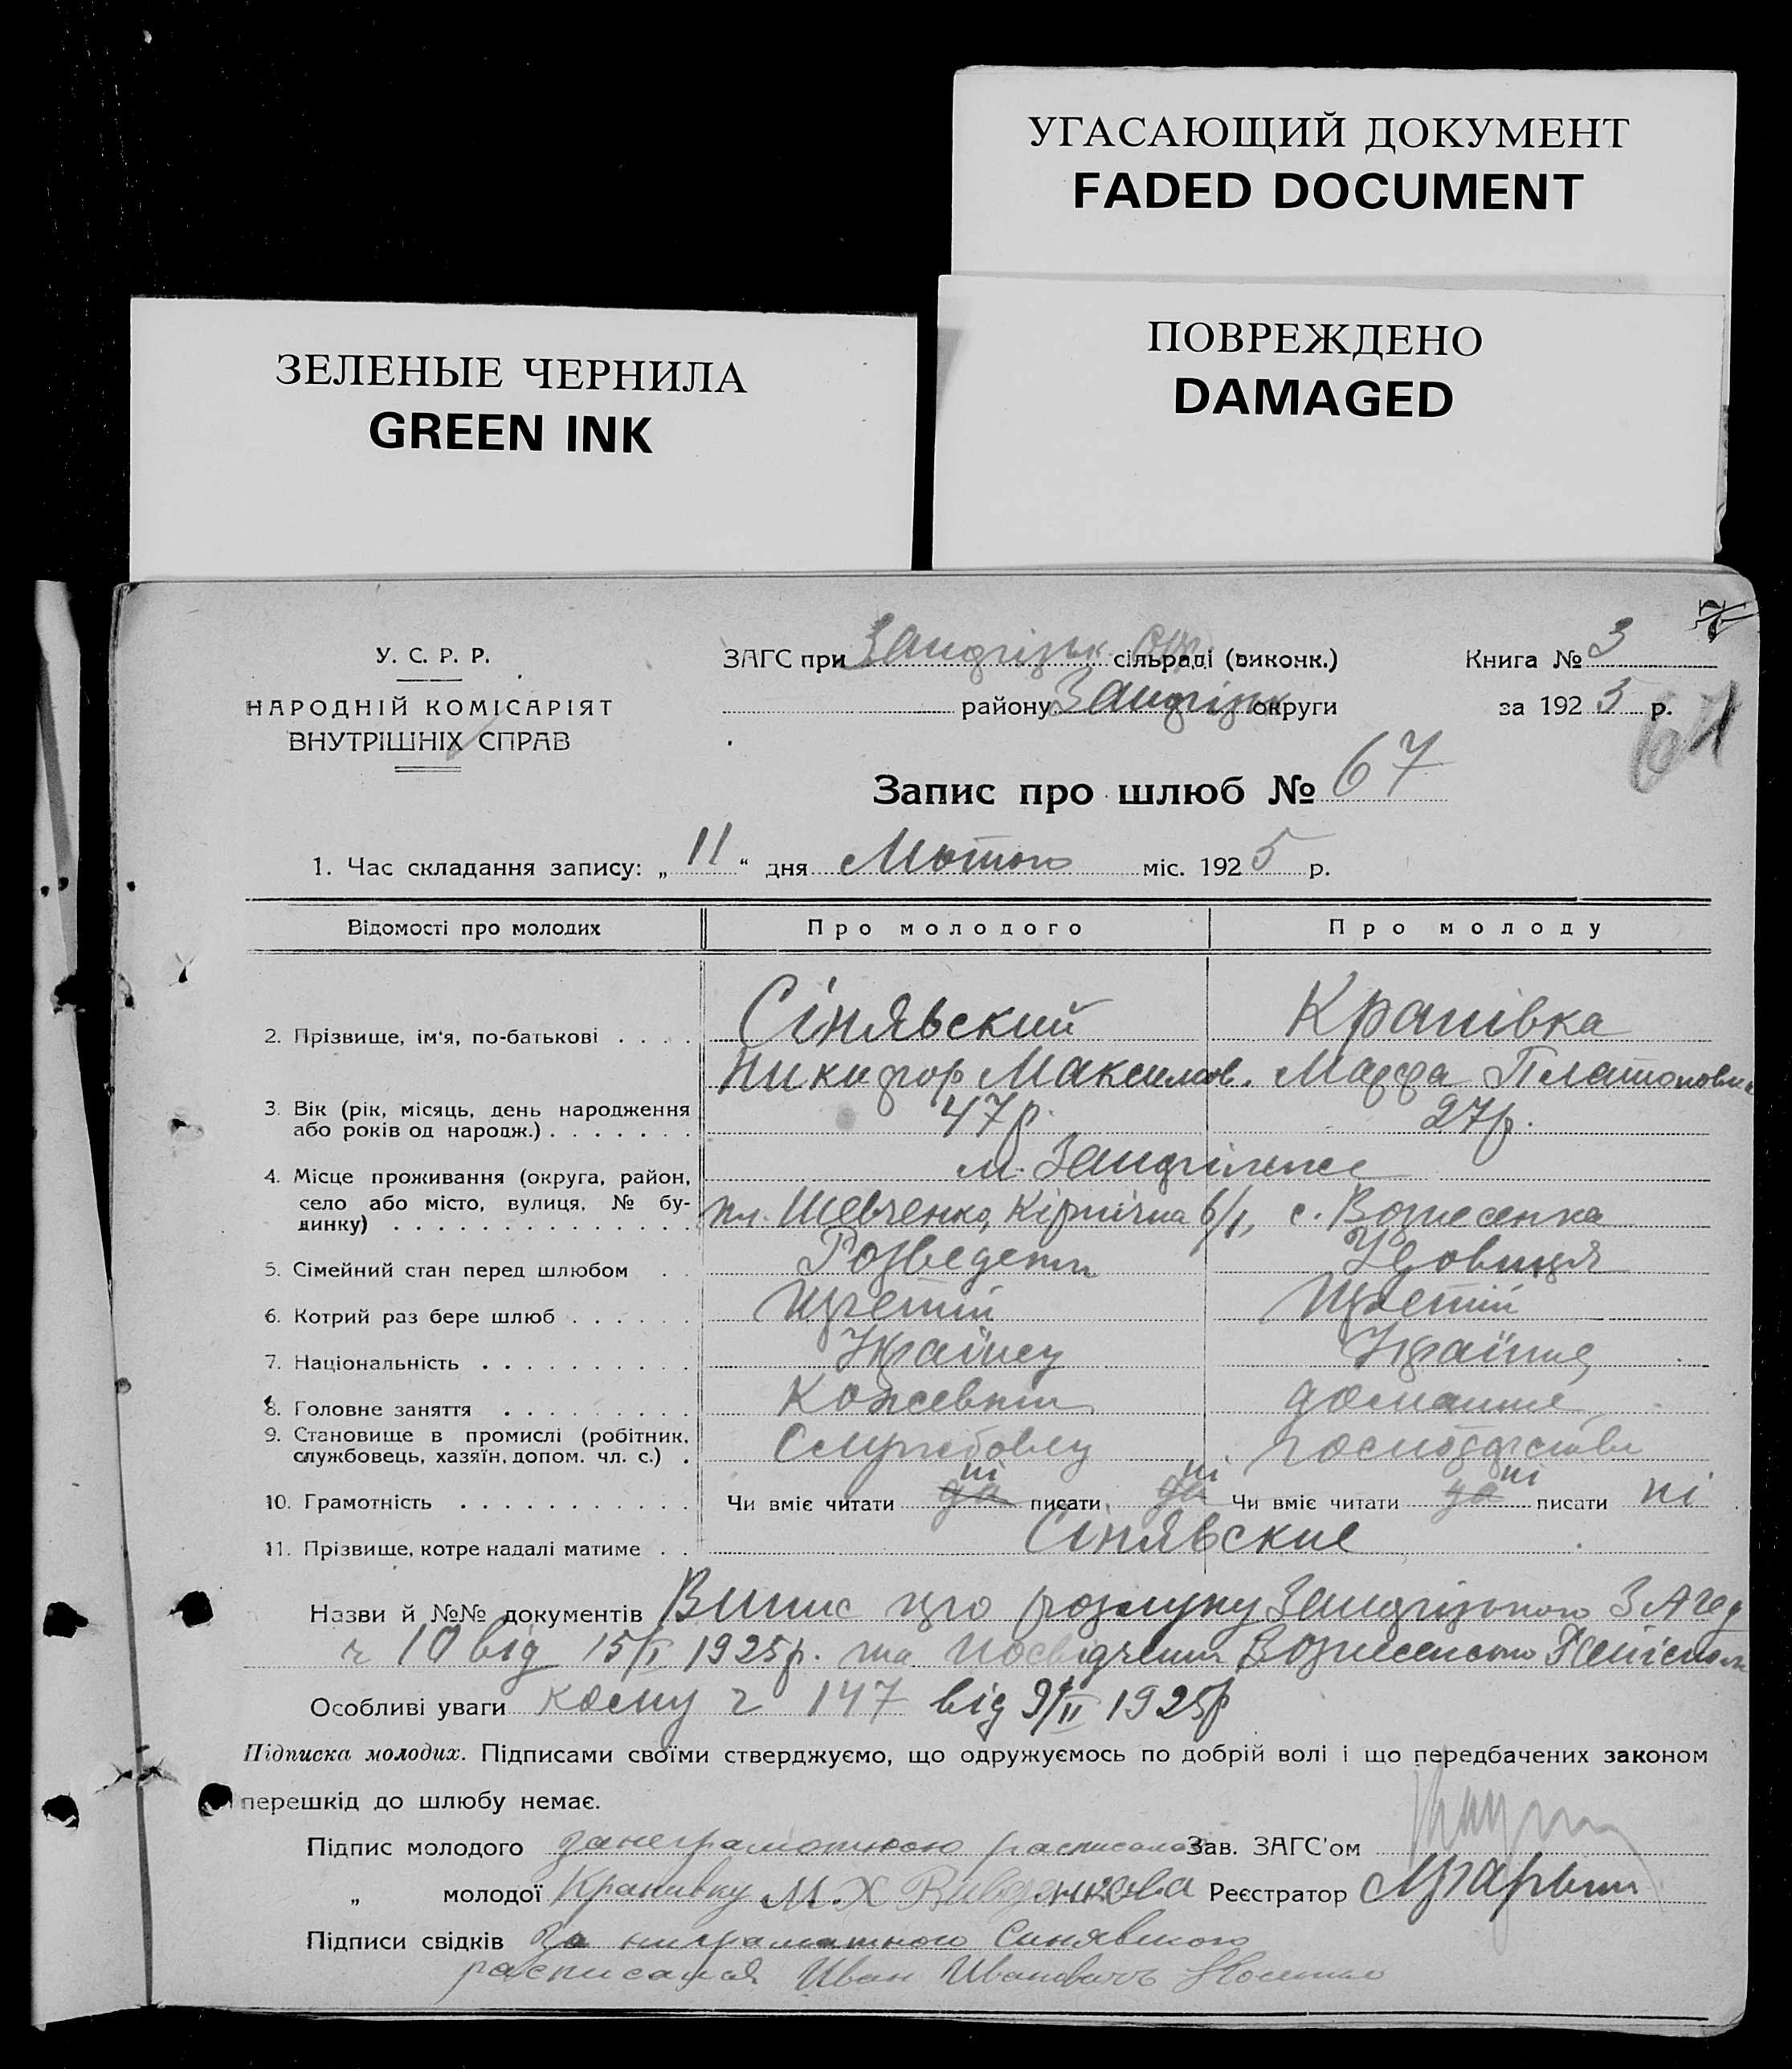 УГАСАЮЩИЙ ДОКУМЕНТ
FADED DOCUMENT
ЗЕЛЕНЫЕ ЧЕРНИЛА
GREEN INK
ПОВРЕЖДЕНО
DAMAGED
У. С. Р. Р.
НАРОДНІЙ КОМІСАРІЯТ
ВНУТРІШНІХ СПРАВ
ЗАГС при Запоріжк. сільраді (виконк.)
району Запоріжк округи
Книга № 3
за 1925 р.
67
Запис про шлюб № 67
1. Час складання запису: „ 11 “ дня Лютого міс. 1925 р.
Відомості про молодих Про молодого Про молоду
2. Прізвище, ім'я, по-батькові . . . . Сінявский Крапівка
Никифор Максимов. Марфа Платоновна
3. Вік (рік, місяць, день народження
або років од народж.) . . . . . . . 47 р. 27 р.
4. Місце проживання (округа, район, м. Запоріжже
село або місто, вулиця, № бу-
динку) . . . . . . . . . . . . . . пл. Шевченко, Кірпічна 6/1, с. Вознесенка
5. Сімейний стан перед шлюбом . . Розведени Удовиця
6. Котрий раз бере шлюб . . . . . . третій третій
7. Національність . . . . . . . . . . Українец Україне,
8. Головне заняття . . . . . . . . . Кожевник домашне,
9. Становище в промислі (робітник,
службовець, хазяїн, допом. чл. с.) . Службовец господарстві
10. Грамотність . . . . . . . . . . . Чи вміє читати да ні писати да ні Чи вміє читати да ні писати ні
11. Прізвище, котре надалі матиме . . Сінявские
Назви й №№ документів Випис про розлуку Запорізького
ч 10 від 15/I 1925 р. та посвідчення Вознесенсько
Особливі уваги кому ч 147 від 9/II 1925 р
Підписка молодих. Підписами своїми стверджуємо, що одружуємось по добрій волі і що передбачених законом
перешкід до шлюбу немає.
Підпис молодого за неграмотною расписалась Зав. ЗАГС'ом
„ молодої Крапивку М. Х Реєстратор
Підписи свідків За ниграматного Синявского
расписался Иван Ивановичъ